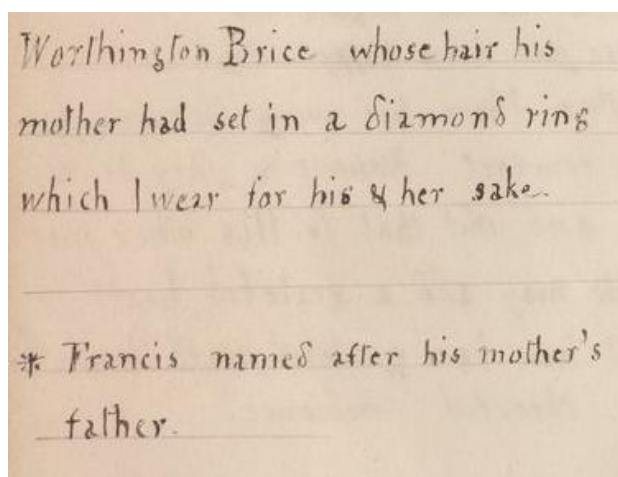 Worthington Brice whose hair his
mother had set in a diamond ring
which I wear for his & her sake.
* Francis named after his mother's
father.